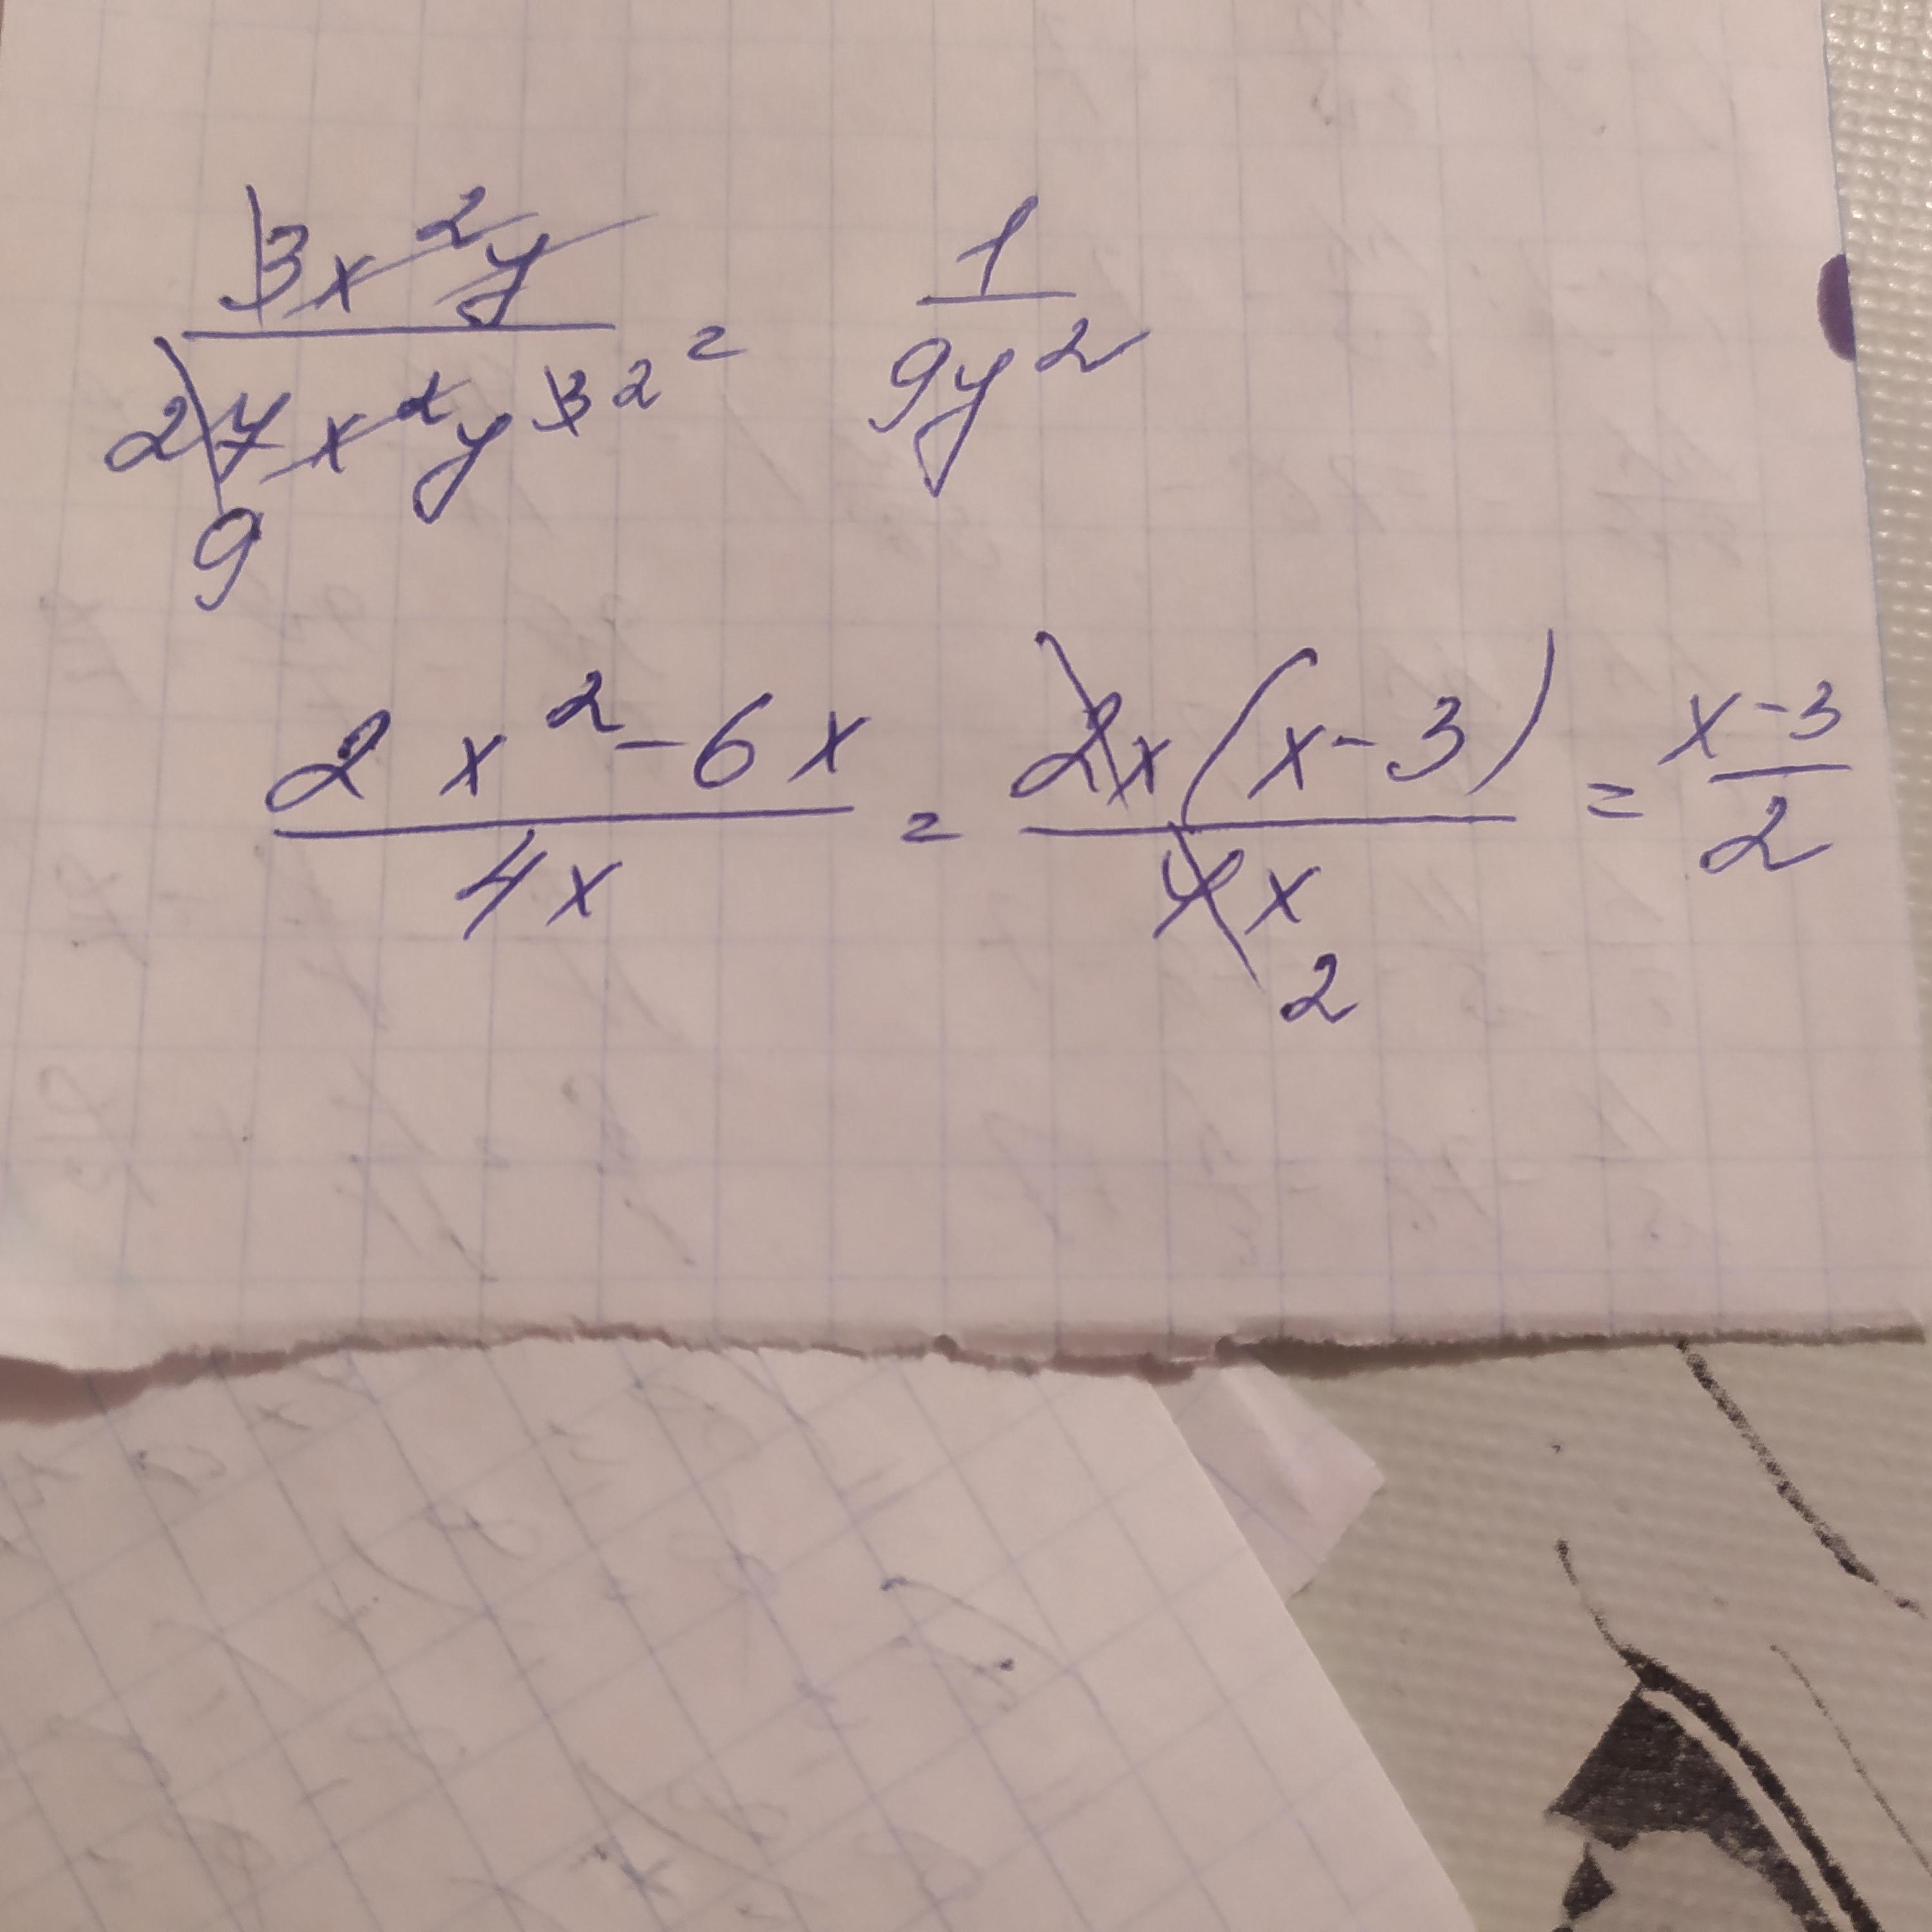 3x²y / 27x²y³ 2 = 1 / 9y²
9
2x² - 6x / 4x = 2x(x - 3) / 4x = x - 3 / 2
2